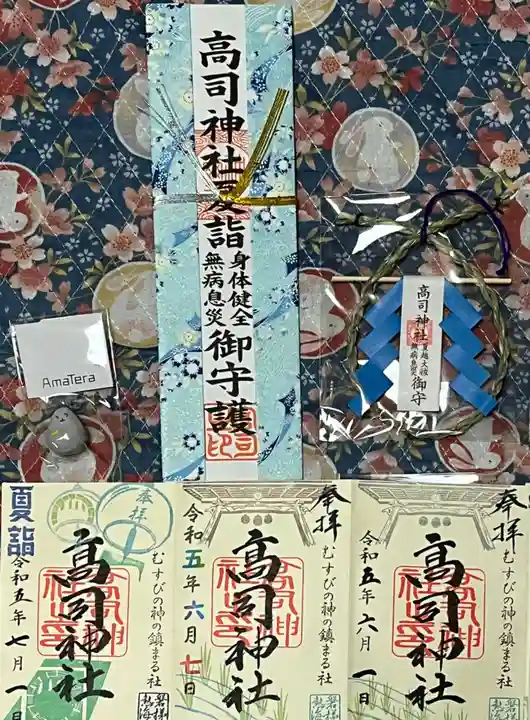 高司神社夏詣
身体健全
無病息災
御守護
高司神社
夏越大祓
無病息災
御守
AmaTera
夏詣
奉拝
むすびの神の鎮まる社
高司神社
令和五年七月一日
奉拝
むすびの神の鎮まる社
高司神社
令和五年六月七日
奉拝
むすびの神の鎮まる社
高司神社
令和五年六月一日